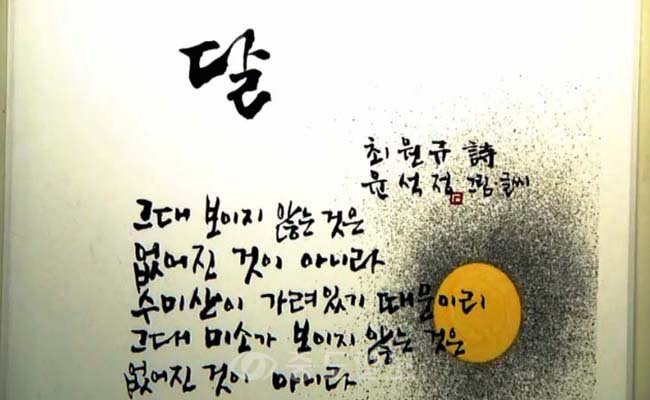 달
최원규 詩
윤석정 그림·글씨
그대 보이지 않는 것은
없어진 것이 아니라
수미산이 가려있기 때문이리
그대 미소가 보이지 않는 것은
없어진 것이 아니라